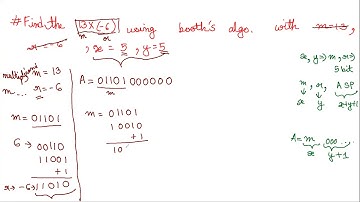 # Find the 13 x (-6) using booth's algo. with m = 13,
r = -6
m r
, x = 5, y = 5
multiplicand m = 13
m... r = -6
m = 01101
6 → 00110
11001
+1
r → -6 → 11010
A = 01101 000000
m
m = 01101
10010
+1
10
x, y → m, r →
5 bit
m, r, A S P
x y x+y+1
A = m 000...
x y+1